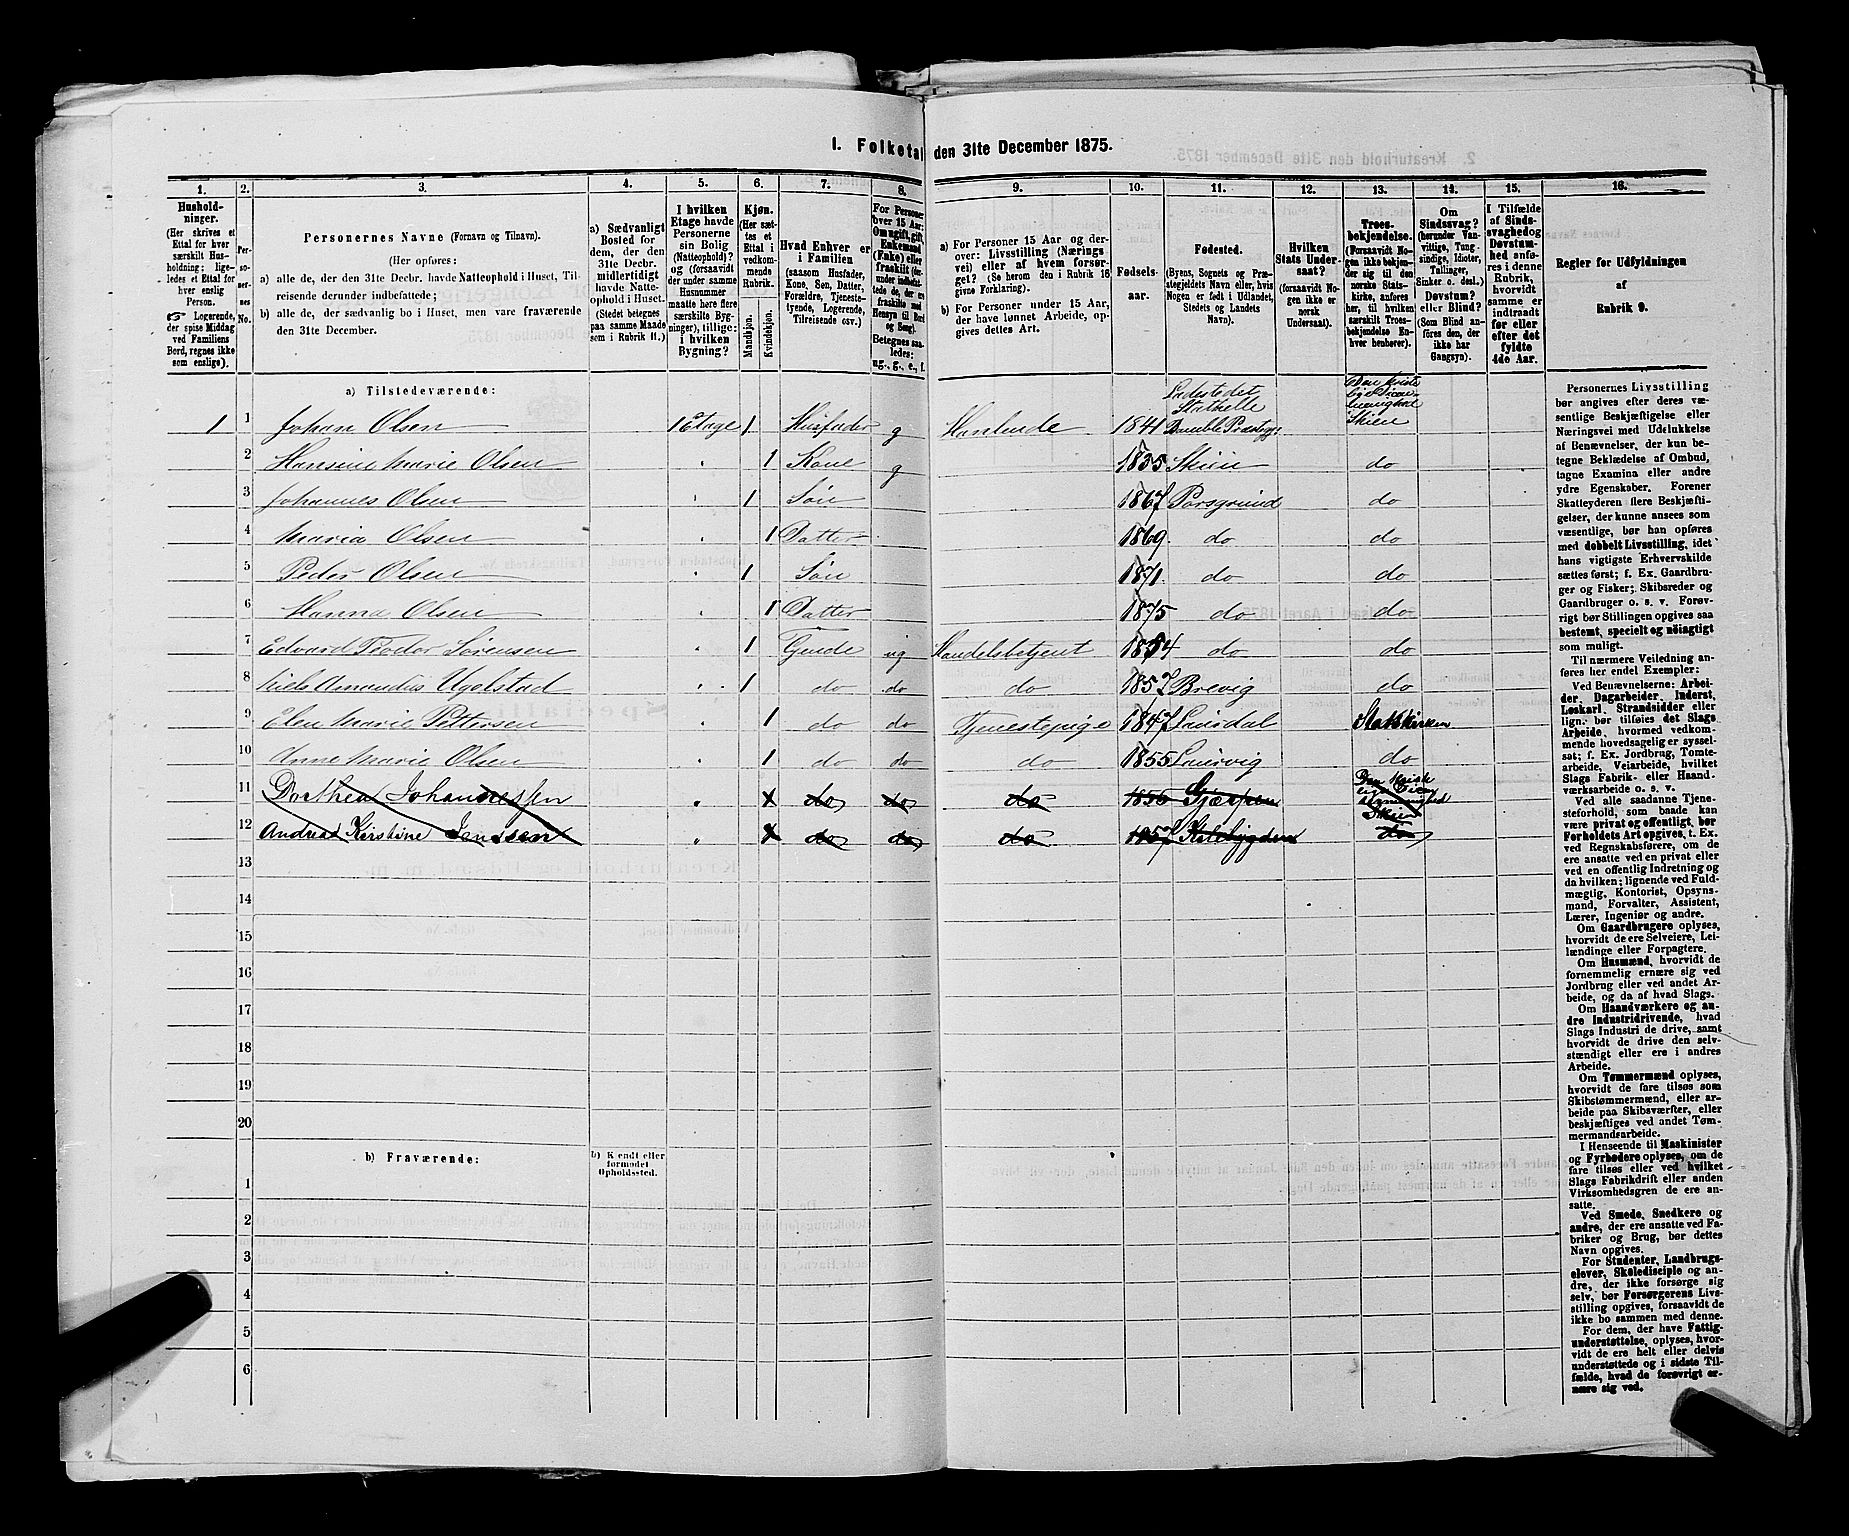 1. Folketal den 31te December 1875.
1. 2. 3. 4. 5. 6. 7. 8. 9. 10. 11. 12. 13. 14. 15. 16.
Hushold-
ninger.
(Her skrives et
Ettal for hver
særskilt Hus-
holdning; lige-
ledes et Ettal for
hver enslig
Person.
☞ Logerende,
der spise Middag
ved Familiens
Bord, regnes ikke
som enslige).
Per-
so-
ner-
nes
No.
Personernes Navne (Fornavn og Tilnavn).
(Her opføres:
a) alle de, der den 31te Decbr. havde Natteophold i Huset, Til-
reisende derunder indbefattede;
b) alle de, der sædvanlig bo i Huset, men vare fraværende
den 31te December.
a) Sædvanligt
Bosted for
dem, der den
31te Decbr.
midlertidigt
havde Natte-
ophold i Huset.
(Stedet betegnes
paa samme Maade
som i Rubrik 11.)
I hvilken
Etage havde
Personerne
sin Bolig
(Natteophold)?
og (forsaavidt
der under samme
Husnummer
maatte høre flere
særskilte Byg-
ninger), tillige:
i hvilken
Bygning?
Kjøn.
(Her sæt-
tes et
Ettal i
vedkom-
mende
Rubrik.
Mandkjøn.
Kvindekjøn.
Hvad Enhver er
i Familien
(saasom Husfader,
Kone, Søn, Datter,
Forældre, Tjeneste-
tyende, Logerende,
Tilreisende osv.)
For Personer
over 15 Aar:
Om ugift, gift,
Enkemand
(Enke) eller
fraskilt
Hensyn til Bord
og Seng).
Betegnes saa-
ledes:
ug., g., e., f.
a) For Personer 15 Aar og der-
over: Livsstilling (Nærings
vei) eller af hvem forsør-
get? (Se herom den i Rubrik 16
givne Forklaring).
b) For Personer under 15 Aar,
der have lønnet Arbeide, op-
gives dettes Art.
Fødsels-
aar.
Fødested.
(Byens, Sognets og Præ-
stegjeldets Navn eller, hvis
Nogen er født i Udlandet,
Stedets og Landets
Navn).
Hvilken
Stats Under-
saat?
(forsaavidt No-
gen ikke er
norsk
Undersaat).
Troes-
bekjendelse.
(Forsaavidt No-
gen ikke bekjen-
der sig til den
norske Stats-
kirke, anføres
her, til hvilken
særskilt Troes-
bekjendelse En-
hver henhører).
Om
Sindssvag?
(herunder Van-
vittige, Tung-
sindige, Idioter,
Tullinger,
Sinker o. desl.)
Døvstum?
eller Blind?
(Som Blind an-
føres den, der
ikke har
Gangsyn).
I Tilfælde
af Sinds-
svaghed og
Døvstum-
hed anfø-
res i denne
Rubrik,
hvorvidt
samme er
indtraadt
før eller
efter det
fyldte
4de Aar.
Regler for Udfyldningen
af
Rubrik 9.
a) Tilstedeværende:
1 1 Johan Olsen 1 Etage 1 Husfader g 1841 Ladestedet Stathelle Bamble Præstegj: Skien
2 Hansine Marie Olsen " 1 Kone g 1835 Skien do
3 Johannes Olsen " 1 Søn 1867 Porsgrund do
4 Maria Olsen " 1 Datter 1869 do do
5 Peder Olsen " 1 Søn 1871 do do
6 Hanna Olsen " 1 Datter 1875 do do
7 Edvard Peder Sørensen " 1 Tjende ug Handelsbetjent 1854 do do
8 Niels Amandus Ugelstad " 1 do do do 1857 Brevig do
9 Elen Marie Pettersen " 1 do do Tjenestepige 1847 Laurdal Statskirken
10 Anne Marie Olsen " 1 do do do 1855 Laurvig do
11 Dorthea Johannessen " do do do 1856 Gjerpen Skien
12 Andrea Kirstine Jenssen " do do do 1857 do
13
14
15
16
17
18
19
20
b) Fraværende:
b) Kjendt eller
formodet
Opholdssted.
1
2
3
4
5
6
Personernes Livsstilling
bør angives efter deres væ-
sentlige Beskjæftigelse eller
Næringsvei med Udelukkelse
af Benævnelser, der kun be-
tegne Beklædelse af Ombud,
tagne Examina eller andre
ydre Egenskaber. Forener
Skatteyderen flere Beskjæfti-
gelser, der kunne ansees som
væsentlige, bør han opføres
med dobbelt Livsstilling, idet
hans vigtigste Erhvervskilde
sættes først; f. Ex. Gaardbru-
ger og Fisker; Skibsreder og
Gaardbruger o. s. v. Forøv-
rigt bør Stillingen opgives saa
bestemt, specielt og nøiagtigt
som muligt.
Til nærmere Veiledning an-
føres her endel Exempler:
Ved Benævnelserne: Arbei-
der, Dagarbeider, Inderst,
Løskarl, Strandsidder eller
lign. bør tilføies det Slags
Arbeide, hvormed vedkom-
mende hovedsagelig er syssel-
sat; f. Ex. Jordbrug, Tomte-
arbeide, Veiarbeide, hvilket
Slags Fabrik- eller Haand-
værksarbeide o. s. v.
Ved alle saadanne Tjene-
steforhold, som baade kan
være privat og offentligt, bør
Forholdets Art opgives, t. Ex.
ved Regnskabsførere, om de
ere ansatte ved en privat eller
ved en offentlig Indretning og
da hvilken; lignende ved Fuld-
mægtig, Kontorist, Opsyns-
mand, Forvalter, Assistent,
Lærer, Ingeniør og andre.
Om Gaardbrugere oplyses,
hvorvidt de ere Selveiere, Lei-
lændinge eller Forpagtere.
Om Husmænd, hvorvidt de
fornemmelig ernære sig ved
Jordbrug eller ved andet Ar-
beide, og da af hvad Slags.
Om Haandværkere og an-
dre Industridrivende, hvad
Slags Industri de drive, samt
hvorvidt de drive den selv-
stændigt eller ere i andres
Arbeide.
Om Tømmermænd oplyses,
hvorvidt de fare tilsøs som
Skibstømmermænd, eller ar-
beide paa Skibsværfter, eller
beskjæftiges ved andet Tøm-
mermandsarbeide.
I Henseende til Maskinister
og Fyrbødere oplyses, om de
fare tilsøs eller ved hvilket
Slags Fabrikdrift eller anden
Virksomhedsgren de ere an-
satte.
Ved Smede, Snedkere og
andre, der ere ansatte ved Fa-
briker og Brug, bør dettes
Navn opgives.
For Studenter, Landbrugs-
elever, Skoledisciple og an-
dre, der ikke forsørge sig
selv, bør Forsørgerens Livs-
stilling opgives, forsaavidt de
ikke bo sammen med denne.
For dem, der have Fattig-
understøttelse, oplyses, hvor-
vidt de ere helt eller delvis
understøttede og i sidste Til-
fælde, hvad de forøvrigt er-
nære sig ved.